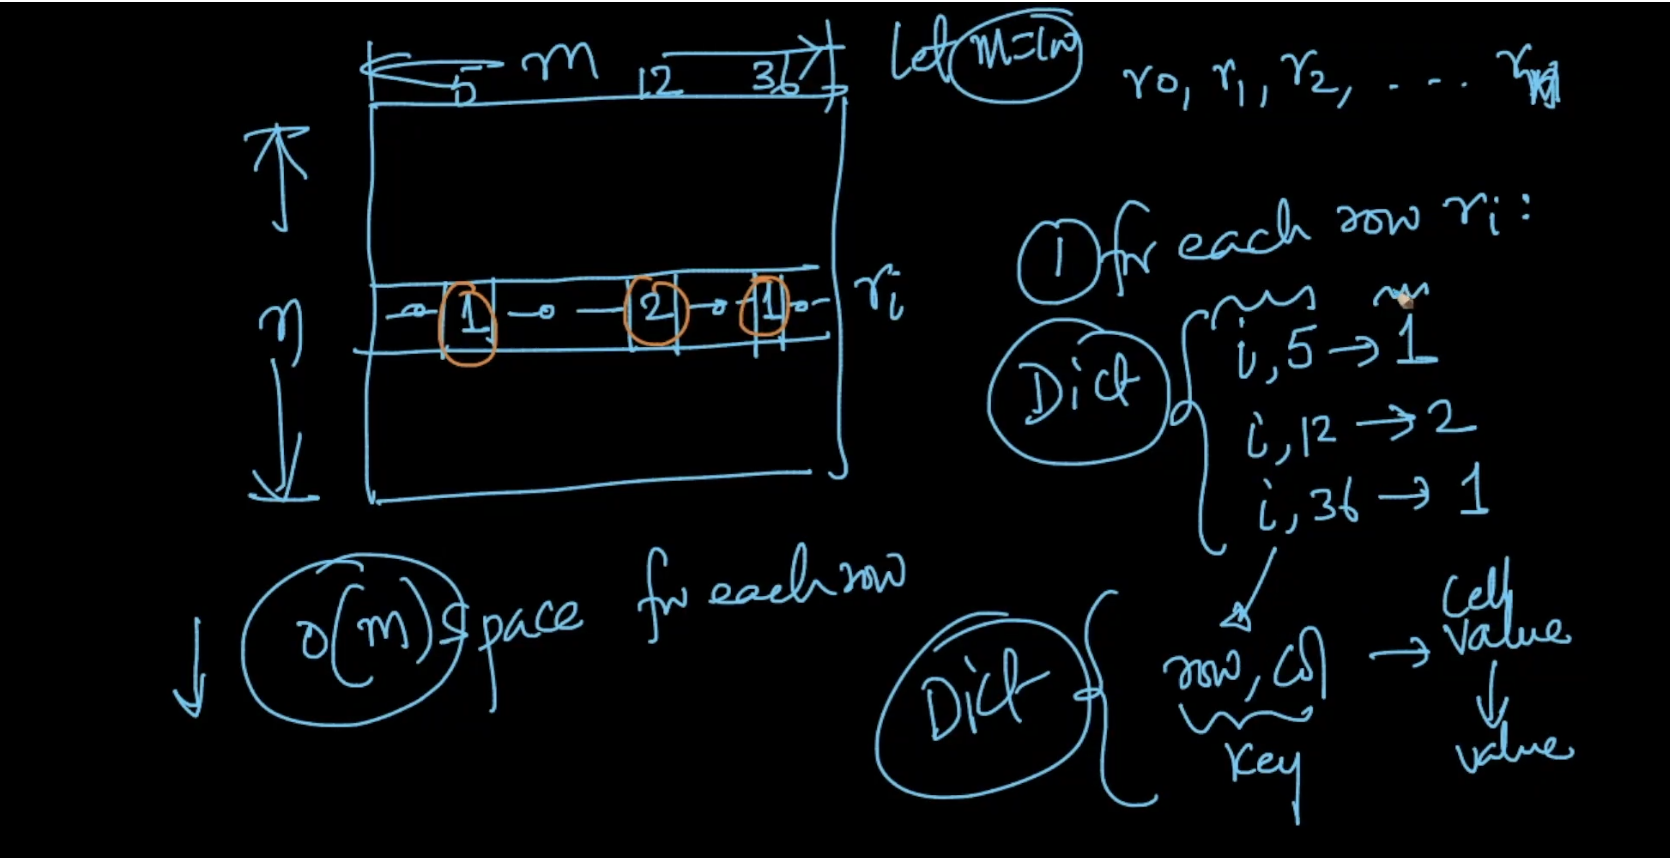 m
5 12 36
Let m=100
r0, r1, r2, . . . .
n
0 1 0 2 0 1 0
ri
1 for each row ri :
Dict { i, 5 → 1
i, 12 → 2
i, 36 → 1
O(m) space for each row
Dict { row, col → cell value
key
value